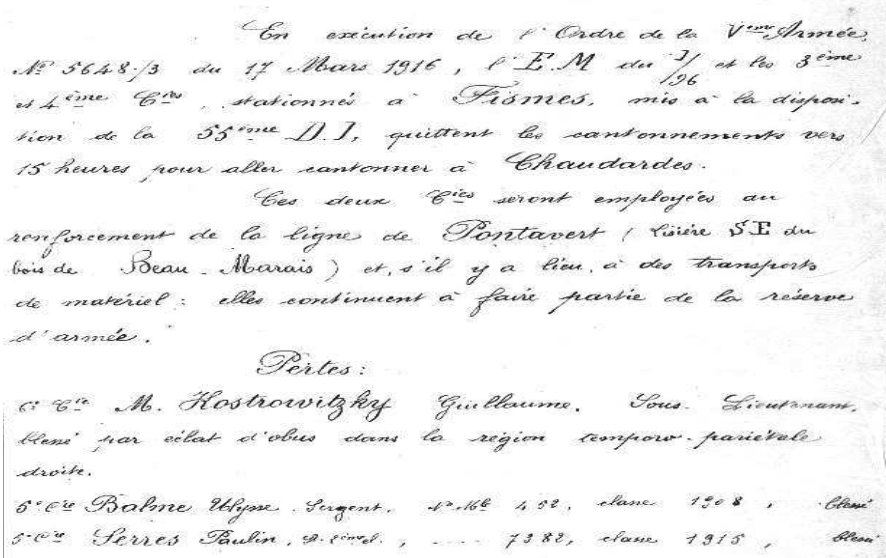 En exécution de l'Ordre de la Vème Armée,
No 5648/3 du 17 Mars 1916, l'E.M du I/96 et les 3ème
et 4ème Cies, stationnés à Fismes, mis à la disposi-
tion de la 55ème D.I, quittent les cantonnements vers
15 heures pour aller cantonner à Chaudardes.
Ces deux Cies seront employées au
renforcement de la ligne de Pontavert (lisière SE du
bois de Beau-Marais) et, s'il y a lieu, à des transports
de matériel : elles continuent à faire partie de la réserve
d'armée.
Pertes :
6e Cie M. Kostrowitzky Guillaume. Sous-Lieutenant,
blessé par éclat d'obus dans la région temporo-pariétale
droite.
5e Cie Balme Ulysse Sergent, No Mle 452, classe 1908, blessé
5e Cie Serres Paulin, .... 7382, classe 1915, blessé